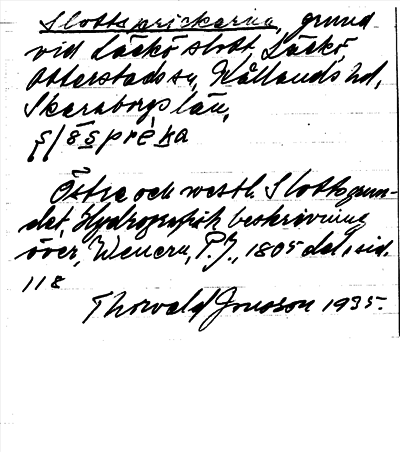 Slottsprickarna, grund
vid Läckö slott, Läckö,
Otterstads sn, Kållands hd,
Skaraborgs län,
Östra och westl. Slottsgrun-
det, Hydrografisk beskrivning
över, Wenern, P. J., 1805 del, sid.
118
Thorvald Jonsson 1935.